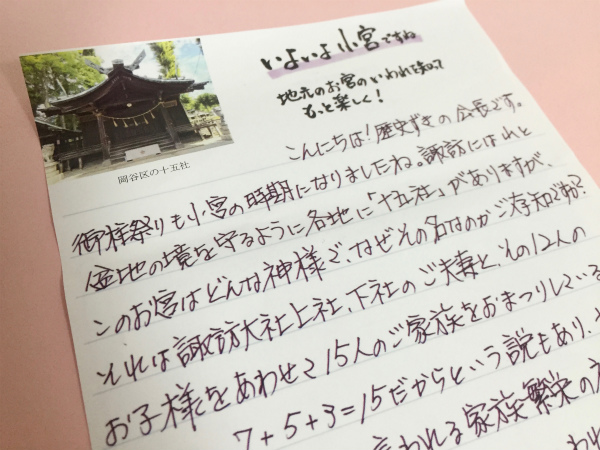 いよいよ小宮ですね
地元のお宮のいわれを知って
もっと楽しく!
岡谷区の十五社
こんにちは!歴史ずきの会長です。
御柱祭りも小宮の時期になりましたね。諏訪には れと
盆地の境を守るように各地に「十五社」がありますが、
このお宮はどんな神様で、なぜその名なのかご存知ですか?
それは諏訪大社上社、下社のご夫妻と、その12人の
お子様をあわせて15人のご家族をおまつりしている
7+5+3=15だからという説もあり、
言われる家族繁栄の
われ